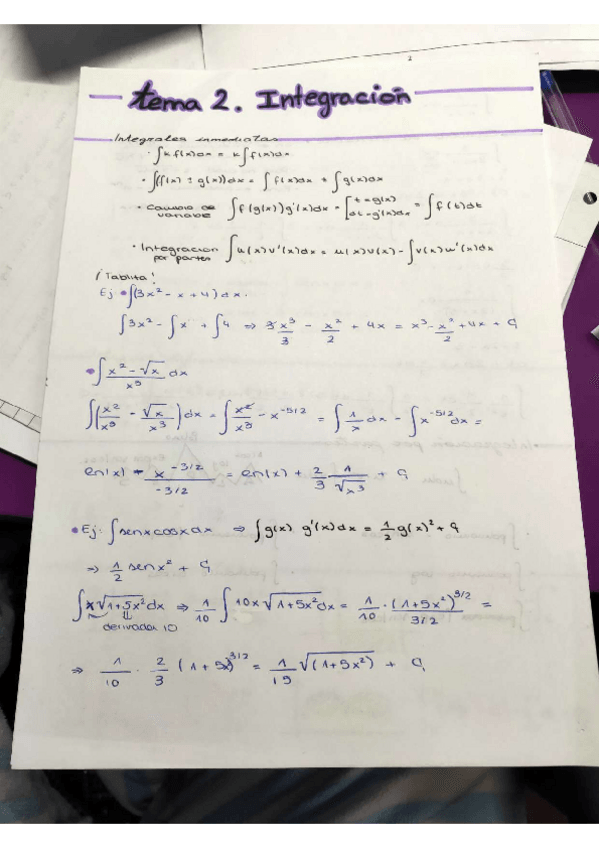 tema 2. Integración
Integrales inmediatas
· ∫k f(x)dx = k∫f(x)dx
· ∫(f(x) ± g(x))dx = ∫f(x)dx + ∫g(x)dx
· Cambio de variable ∫f(g(x))g'(x)dx = [t = g(x) dt = g'(x)dx] = ∫f(t)dt
· Integracion por partes ∫u(x)v'(x)dx = u(x)v(x) - ∫v(x)u'(x)dx
¡Tablita!
Ej • ∫(3x² - x + 4)dx.
∫3x² - ∫x + ∫4 ⇒ 3x³/3 - x²/2 + 4x = x³ - x²/2 + 4x + C
• ∫ (x² - √x)/x³ dx
∫(x²/x³ - √x/x³)dx = ∫x²/x³ - x^-5/2 = ∫1/x dx - ∫x^-5/2 dx =
ln(x) - x^-3/2 / -3/2 = ln(x) + 2/3 1/√x³ + C
• Ej: ∫senxcosxdx ⇒ ∫g(x) g'(x)dx = 1/2 g(x)² + C
⇒ 1/2 senx² + C
∫x√1+5x² dx ⇒ 1/10 ∫10x√1+5x² dx = 1/10 · (1+5x²)^3/2 / 3/2 =
derivada 10
⇒ 1/10 · 2/3 (1+5x)^3/2 = 1/15 √(1+5x²) + C